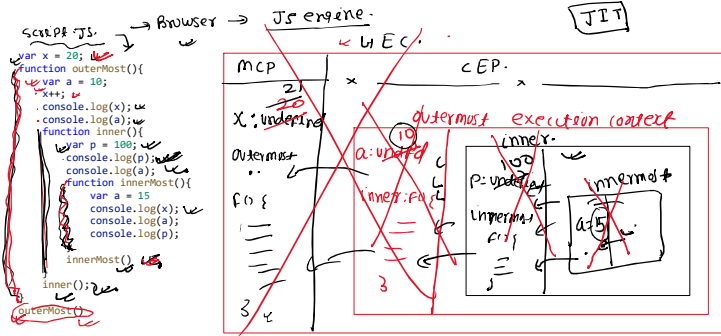 script.JS.
→ Browser → JS engine.
JIT
↳ E C.
var x = 20;
function outerMost(){
var a = 10;
x++;
console.log(x);
console.log(a);
function inner(){
var p = 100;
console.log(p);
console.log(a);
function innerMost(){
var a = 15
console.log(x);
console.log(a);
console.log(p);
innerMost()
}
inner();
}
outerMost()
MCP
CEP.
21
20
X:
outermost
f() {
}
outermost execution context
10
a:
inner: f() {
}
inner.
100
p:
innermost
f() {
}
innermost
a: 15